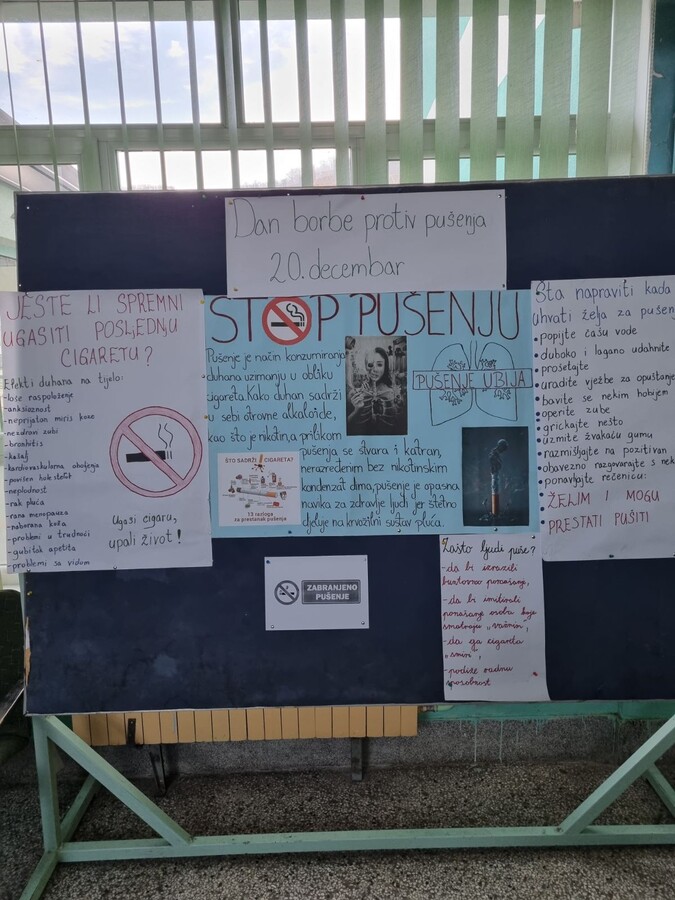 Dan borbe protiv pušenja
20. decembar
JESTE LI SPREMNI
UGASITI POSLJEDNJU
CIGARETU?
Efekti duhana na tijelo:
-loše raspoloženje
-anksioznost
-neprijatan miris kose
-nezdravi zubi
-bronhitis
-kašalj
-kardiovaskularna oboljenja
-povišen holesterol
-neplodnost
-rak pluća
-rana menopauza
-naborana koža
-problemi u trudnoći
-gubitak apetita
-problemi sa vidom
Ugasi cigaru,
upali život!
STOP PUŠENJU
Pušenje je način konzumiranja
duhana uzimanju u obliku
cigareta. Kako duhan sadrži
u sebi otrovne alkaloide,
kao što je nikotin, a prilikom
pušenja se stvara i katran,
nerazređenim bez nikotinskim
kondenzat dima, pušenje je opasna
navika za zdravlje ljudi jer štetno
djeluje na krvožilni sustav pluća.
PUŠENJE UBIJA
ŠTO SADRŽI CIGARETA?
13 razloga
za prestanak pušenja
Šta napraviti kada
uhvati želja za pušenj
popijte čašu vode
duboko i lagano udahnite
prošetajte
uradite vježbe za opuštanje
bavite se nekim hobijem
operite zube
grickajte nešto
uzmite žvakaću gumu
razmišljajte na pozitivan
obavezno razgovarajte s nek
ponavljajte rečenicu:
ŽELIM I MOGU
PRESTATI PUŠITI
ZABRANJENO
PUŠENJE
Zašto ljudi puše?
-da bi izrazili
buntovno ponašanje,
-da bi imitirali
ponašanje osoba koje
smatraju „važnim",
-da ga cigareta
„smiri",
-podiže radnu
sposobnost